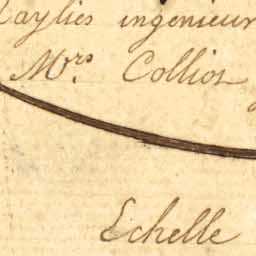 Caylies ingenieur
Mrs. Collios
Echelle